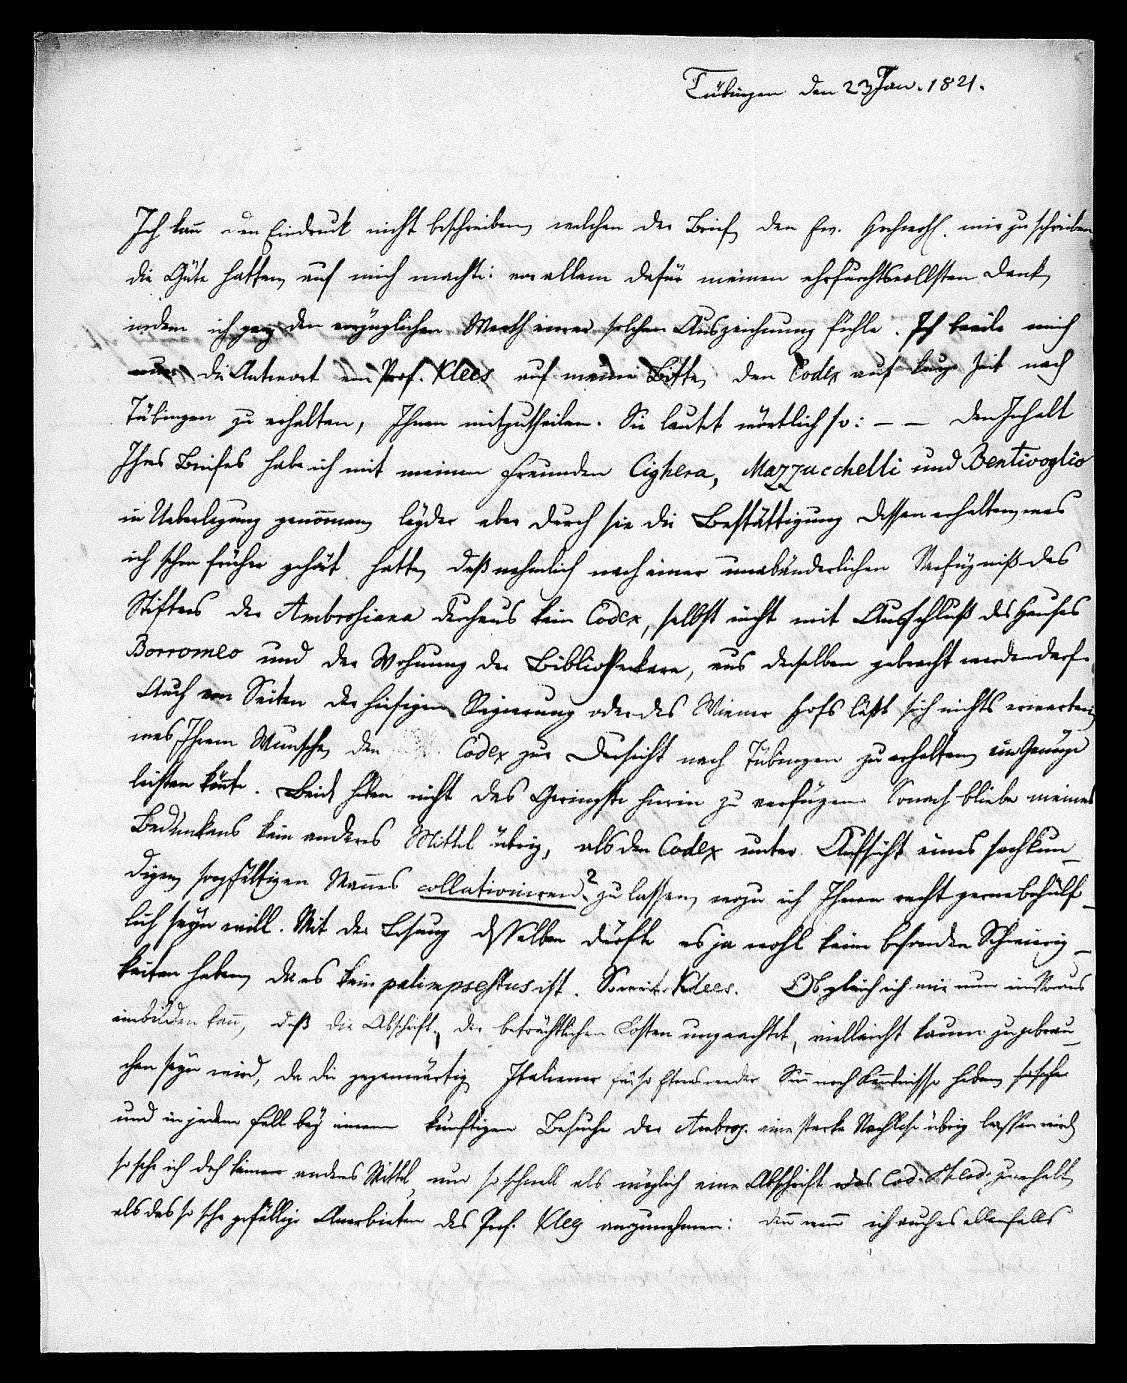 Tübingen den 23 Jan. 1821.
Ich kan̄ den Eindruck nicht beschreiben, welchen der Brief, den Ew. Hochwohl. mir zu schreiben
die Güte hatten, auf mich machte: vor allem dafür meinen ehrfurchtsvollsten Dank,
indem ich ganz den vorzüglichen Werth einer solchen Auszeichnung fühle. Ich beeile mich
nun, die Antwort von Prof. Klees auf meine Bitte, den Codex auf kurze Zeit nach
Tübingen zu erhalten, Ihnen mitzutheilen. Sie lautet wörtlich so: – – Den Inhalt
Ihres Briefes habe ich mit meinen Freunden Cighera, Mazzucchelli und Bentivoglio
in Ueberlegung genom̄en, leyder aber durch sie die Bestättigung dessen erhalten, was
ich schon früher gehört hatte, daß nehmlich nach einer unabänderlichen Verfügniß des
Stifters der Ambrosiana durchaus kein Codex, selbst nicht mit Ausschluß des Hauses
Borromeo und der Wohnung der Bibliothekare, aus derselben gebracht werden darf.
Auch von Seiten der hiesigen Regierung oder des Wiener Hofs läßt sich nichts erwarten,
was Ihrem Wunsche, den Codex zur Dursicht nach Tübingen zu erhalten, ein Genüge
leisten kön̄te. Beide haben nicht das Geringste hierin zu verfügen. Sonach bliebe meines
Bedünkens kein anderes Mittel übrig, als den Codex unter Aufsicht eines sachkun-
digen, sorgfältigen Man̄es collationiren? zu lassen, wozu ich Ihnen recht gerne behülf-
lich seyn will. Mit der Lesung desselben dürfte es ja wohl keine besondere Schwierig-
keiten haben, da es kein palimpsestus ist. Soweit Klees. Obgleich ich mir nun im Voraus
einbilden kan̄, daß die Abschrift, der beträchtlichen Kosten ungeachtet, vielleicht kaum zu gebrau-
chen seyn wird, da die gegenwärtig Italiener für so etwas weder Sin̄ noch Ken̄tnisse haben,
und in jedem Fall bey einem künftigen Besuche der Ambros. eine starke Nachlese übrig lassen wird,
so sehe ich doch keinen anders Mittel, um so schnell als möglich eine Abschrift des Cod. zu erhalt,
als das so sehr gefällige Anerbieten des Prof. Klees anzunehmen: den̄ wen̄ ich auch es allenfalls